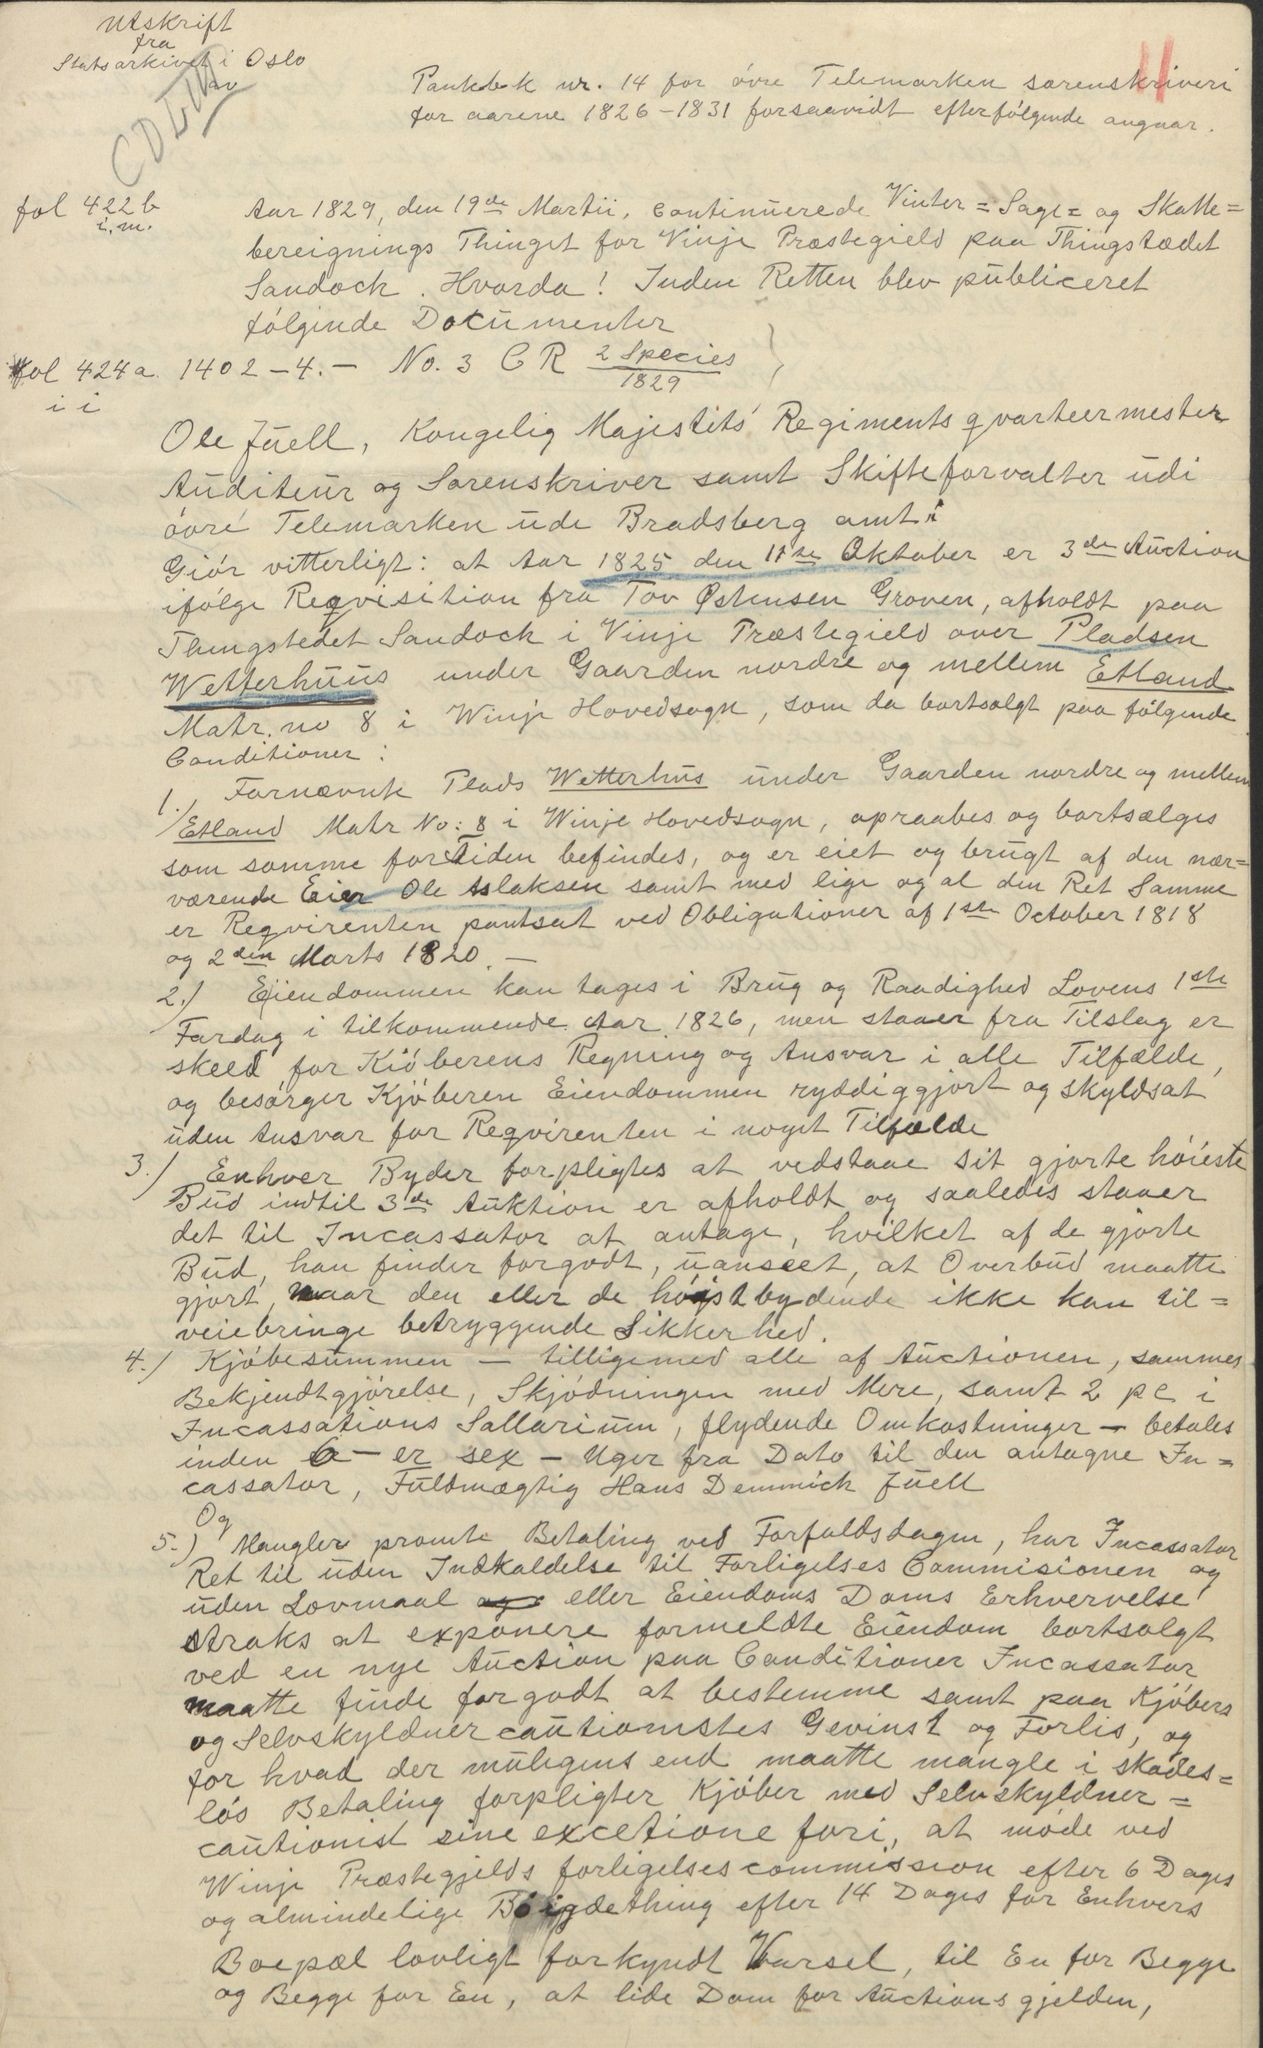 Utskrift
fra
Statsarkivet i Oslo
av
Pantebok nr. 14 for övre Telemarken sorenskriveri
for aarene 1826-1831 forsaavidt efterfölgende angaar.
11
fol 422b
i.m.
Aar 1829, den 19de Martii, continuerede Vinter= Sage= og Skatte=
bereignings Thinget for Vinje Præstegield paa Thingstædet
Sandock. Hvorda! Inden Retten blev publiceret
fölgende Documenter
fol 424a 1402-4.- No. 3 C R 2 Species
1829
i i
Ole Juell, Kongelig Majestets Regimentsqvarteermester
Auditeur og Sorenskriver samt Skifteforvalter udi
övre Telemarken ude Bradsberg amt
Giör vitterligt: at Aar 1825 den 11te Oktober er 3de Auction
ifölge Reqvisition fra Tov Østensen Groven, afholdt paa
Thingstedet Sandock i Vinje Præstegield over Pladsen
Wetterhuus under Gaarden nordre og mellem Etland
Matr. no 8 i Winje Hovedsogn, som da bortsolgt paa fölgende
Conditioner:
1.) Fornævnte Plads Wetterhus under Gaarden nordre og mellem
Etland Matr No: 8 i Winje Hovedsogn, opraabes og bortsælges
som samme for Tiden befindes, og er eiet og brugt af den nær=
værende Eier Ole Aslaksen samt med lige og al den Ret Samme
er Reqvirenten pantsat ved Obligationer af 1ste October 1818
og 2den Marts 1820.-
2.) Eiendommen kan tages i Brug og Raadighed Lovens 1ste
Fardag i tilkommende Aar 1826, men staaer fra Tilslag er
skeed for Kiöberens Regning og Ansvar i alle Tilfælde,
og besörger Kjöberen Eiendommen ryddiggjort og skyldsat
uden Ansvar for Reqvirenten i noget Tilfælde
3.) Enhver Byder forpligtes at vedstaae sit gjorte höieste
Bud indtil 3de Auktion er afholdt og saaledes staaer
det til Incassator at antage, hvilket af de gjorte
Bud, han finder forgodt, uanseet, at Overbud maatte
gjort, naar den eller de höistbydende ikke kan til=
veiebringe betryggende Sikkerhed.
4.) Kjöbesummen - tilligemed alle af Auctionen, sammes
Bekjendtgjörelse, Skjödningen med Mere, samt 2 pc i
Incassations Sallarium, flydende Omkostninger - betales
inden 6 - er sex - Uger fra Dato til den antagne In=
cassator, Fuldmægtig Hans Demmick Juell
Og
5.) Mangler promte Betaling ved Forfaldsdagen, har Incassator
Ret til uden Indkaldelse til Forligelses Commisionen og
uden Lovmaal og eller Eiendoms Doms Erhvervelse
straks at exponere formeldte Eiendom bortsolgt
ved en nye Auction paa Conditioner Incassator
maatte finde forgodt at bestemme samt paa Kjöbers
og Selvskyldnercautionistes Gevinst og Forlis, og
for hvad der muligens end maatte mangle i skades=
lös Betaling forpligter Kjöber med Selvskyldner=
cautionist sine excetione fori, at möde ved
Winje Præstegjelds forligelsescommission efter 6 Dages
og almindelige Böigdething efter 14 Dages for Enhvers
Boepæl lovligt forkyndt Varsel, til En for Begge
og Begge for En, at lide Dom for Auctionsgjelden,